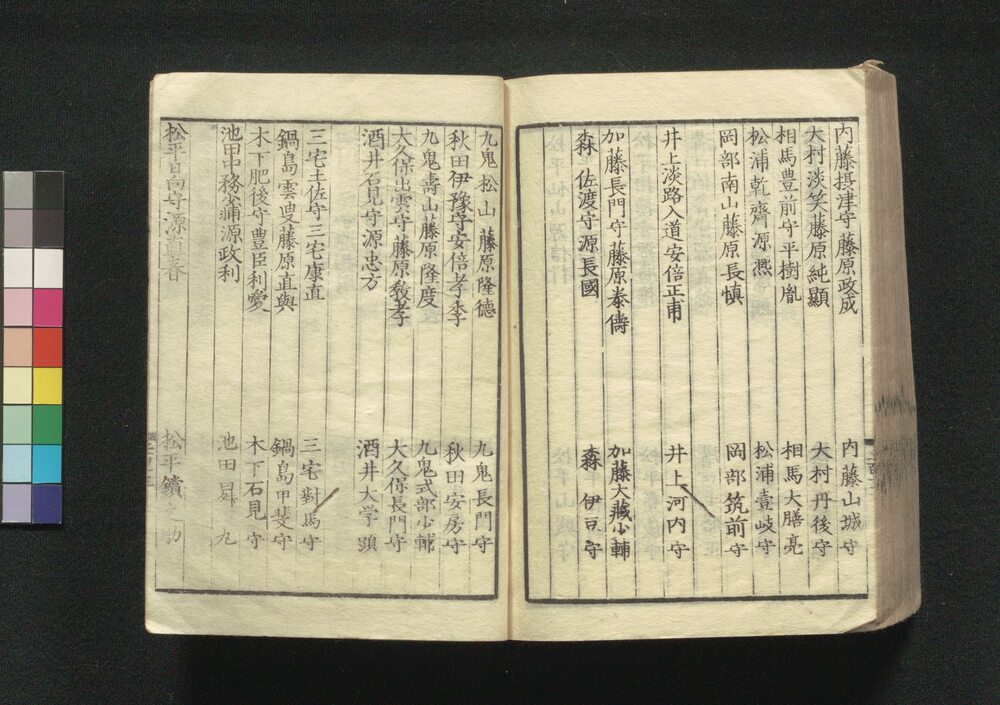 内藤摂津守藤原政成　内藤山城守
大村淡笑藤原純顯　大村丹後守
相馬豊前守平樹胤　相馬大膳亮
松浦乾齋源凞　松浦壹岐守
岡部南山藤原長慎　岡部筑前守
井上淡路入道安倍正甫　井上河内守
加藤長門守藤原泰儔　加藤大藏少輔
森佐渡守源長國　森伊豆守
九鬼松山藤原隆德　九鬼長門守
秋田伊豫守安倍孝季　秋田安房守
九鬼壽山藤原隆度　九鬼式部少輔
大久保出雲守藤原教孝　大久保長門守
酒井石見守源忠方　酒井大学頭
三宅土佐守三宅康直　三宅對馬守
鍋島雲叟藤原直與　鍋島甲斐守
木下肥後守豊臣利愛　木下石見守
池田中務少輔源政利　池田昇丸
松平日向守源直春　松平鑌之助